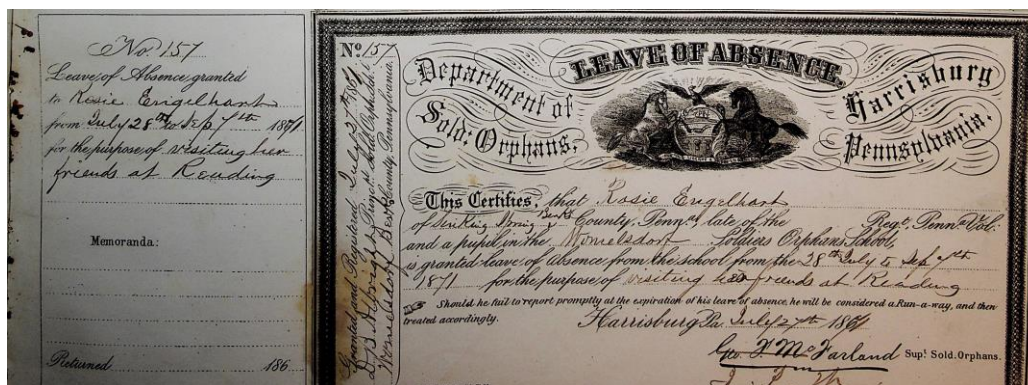 No. 157
Leave of Absence granted
to Rosie Engelhart
from July 28th to Sep 7th 1871
for the purpose of visiting her
friends at Reading
Memoranda:
Returned 186
No 157
Granted and Registered July 27th 1871
D. B. Albright Principal Sold. Orphs. Sch.
Womelsdorf Berks County, Pennsylvania.
LEAVE OF ABSENCE.
Department of Sold: Orphans,
Harrisburg Pennsylvania.
This Certifies, that Rosie Engelhart
of Sinking Spring Berks County, Penna, late of the Regt. Penna Vol:
and a pupil in the Womelsdorf Soldiers Orphans School,
is granted leave of absence from the school from the 28th July to Sep 7th
1871 for the purpose of visiting her friends at Reading
Should he fail to report promptly at the expiration of his leave of absence, he will be considered a Run-a-way, and then
treated accordingly.
Harrisburg Pa. July 27th 1871
Geo. F. McFarland Supt. Sold. Orphans.